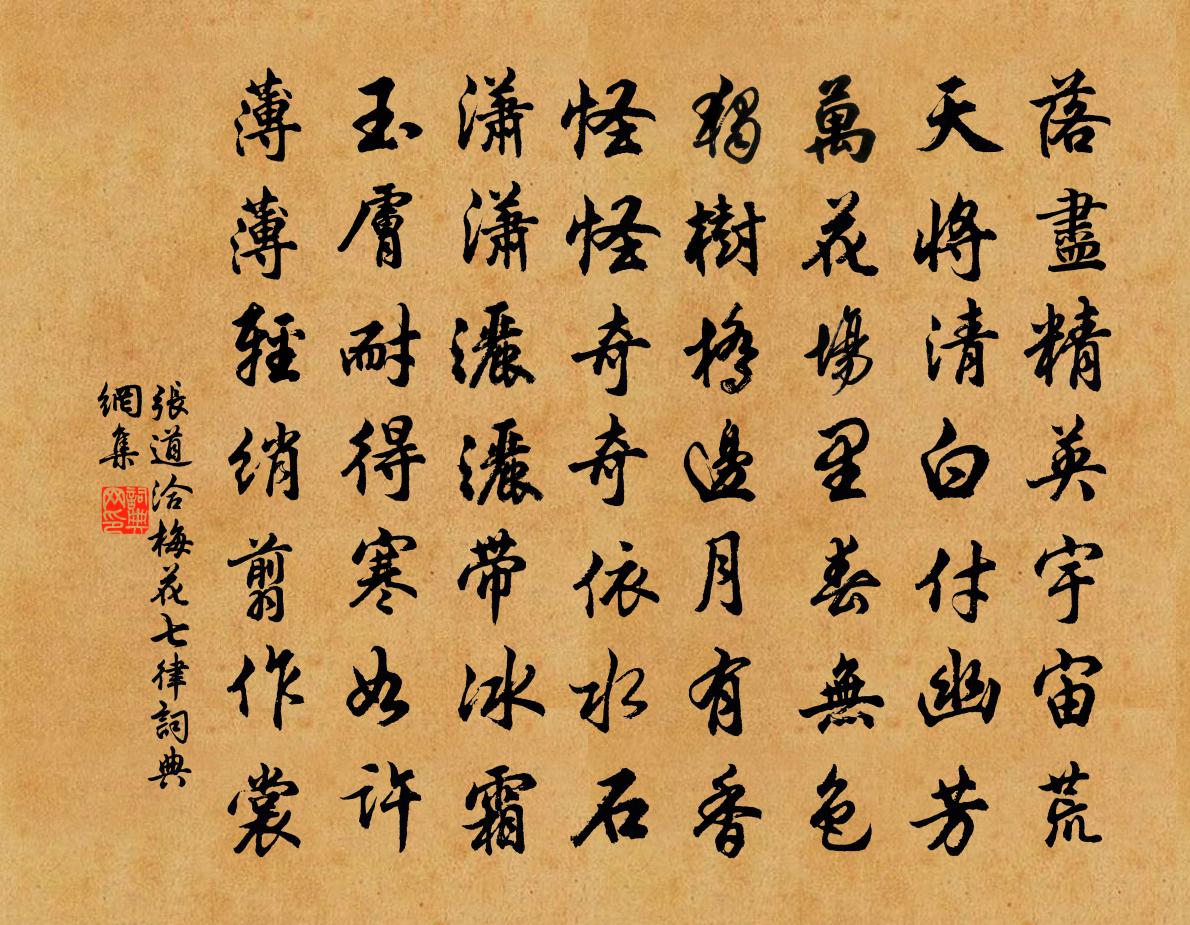 落盡精英宇宙荒
天將清白付幽芳
萬花場里春無色
獨樹橋邊月有香
怪怪奇奇依水石
瀟瀟灑灑带冰霜
玉膚耐得寒如許
薄薄輕綃翦作裳
張道洽梅花七律詞典
網集
詞典网印